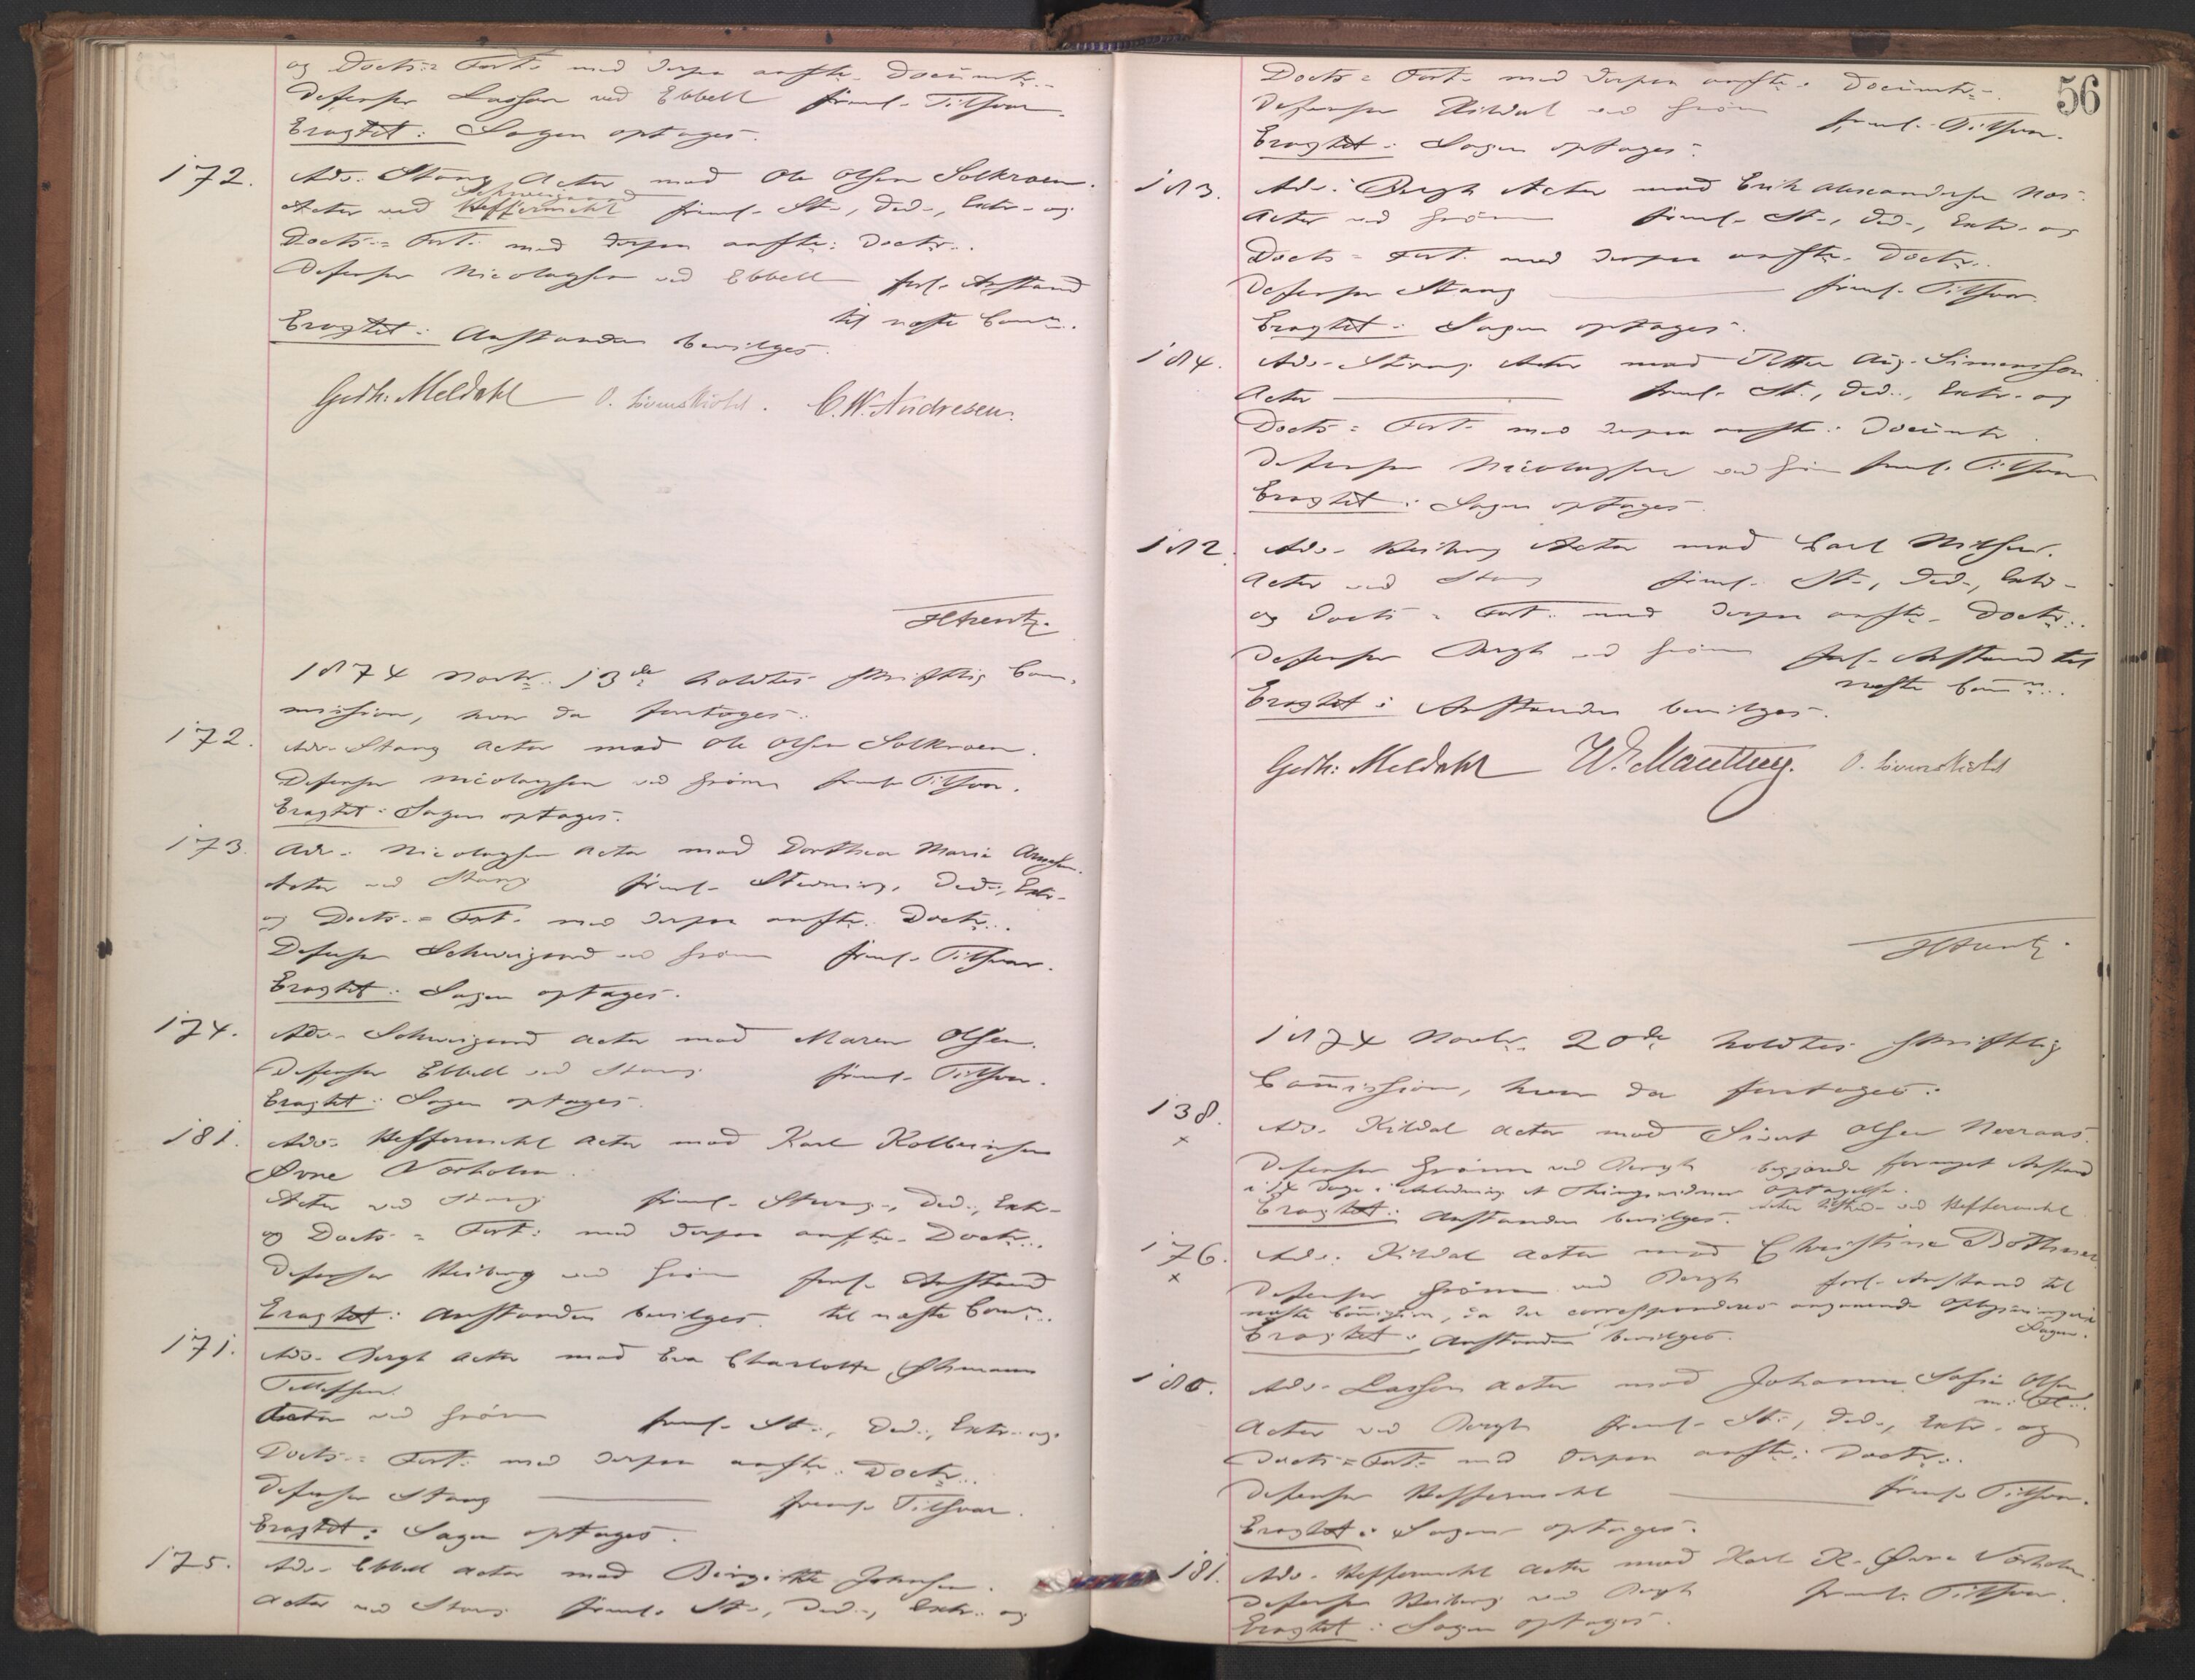 og Docts.= Fort. med derpaa anførte Documtr..
Defensor Lasson ved Ebbell freml. Tilsvar.
Eragtet: Sagen optages.
172. Adv. Stang Actor mod Ole Olsen Solkroen.
Schweigaard
Actor ved Heffermehl freml. St., Ded., Extr. og
Docts.= Fort. med derpaa anførte Doctr..
Defensor Nicolaysen ved Ebbell forl. Anstand
til næste Comm.
Eragtet: Anstanden bevilges.
Godth: Meldahl O. Løvenskiold. C.W. Andresen.
1874 Novbr. 13de holdtes skriftlig Com-
mission, hvor da foretoges:
172. Adv. Stang Actor mod Ole Olsen Solkroen.
Defensor Nicolaysen ved Grønn freml. Tilsvar.
Eragtet: Sagen optages.
173. Adv. Nicolaysen Actor mod Dorthea Maria
Actor ved Stang freml. Stevning, Ded., Extr.
og Docts.= Fort. med derpaa anførte Doctr..
Defensor Schweigaard ved Grønn freml. Tilsvar.
Eragtet: Sagen optages.
174. Adv. Schweigaard Actor mod Maren Olsen.
Defensor Ebbell ved Stang freml. Tilsvar.
Eragtet: Sagen optages.
181. Adv. Heffermehl Actor mod Karl Kolbeinsen
Øvre Norholm.
Actor ved Stang freml. Stevng., Ded., Extr.
og Docts.= Fort. med derpaa anførte Doctr..
Defensor Heiberg ved Grønn forl. Anstand
Eragtet: Anstanden bevilges. til næste Comm..
171. Adv. Bergh Actor mod Eva Charlotte
Tellefsen.
Actor ved Grønn freml. St., Ded., Extr. og
Docts.= Fort. med derpaa anførte Doctr..
Defensor Stang freml. Tilsvar.
Eragtet: Sagen optages.
175. Adv. Ebbell Actor mod Birgitte Johnsen.
Actor ved Stang freml. St., Ded., Extr. og
56
Docts.= Fort. med derpaa anførte Documtr.
Defensor Kildal ved Grønn freml. Tilsvar.
Eragtet: Sagen optages.
183. Adv. Bergh Actor mod Erik Alexandersen
Actor ved Grønn freml. St., Ded., Extr. og
Docts.= Fort. med derpaa anførte Doctr..
Defensor Stang freml. Tilsvar.
Eragtet: Sagen optages.
184. Adv. Stang Actor mod Petter Aug. Simonsson
Actor freml. St., Ded., Extr. og
Docts.= Fort. med derpaa anførte Documtr.
Defensor Nicolaysen ved Grønn freml. Tilsvar
Eragtet: Sagen optages.
182. Adv. Heiberg Actor mod Carl Nilsen.
Actor ved Stang freml. St., Ded., Extr.
og Docts.= Fort. med derpaa anførte Doctr..
Defensor Bergh ved Grønn forl. Anstand til
næste Comm..
Eragtet: Anstanden bevilges.
Godth: Meldahl O. Løvenskiold
1874 Novbr. 20de holdtes skriftlig
Commission, hvor da foretoges:
138. Adv. Kildal Actor mod Sivert Olsen
x
Defensor Grønn ved Bergh begjærede forænget Anstand
i 14 Dage i Anledning af Thingsvidner Optagelse.
Actor ved Heffermehl
Eragtet: Anstanden bevilges.
176. Adv. Kildal Actor mod Christine Bothner
x
Defensor Grønn ved Bergh forl. Anstand til
næste Commission, da der correspondere angaaende Oplysninger i
Sagen.
Eragtet: Anstanden bevilges.
180. Adv. Lasson Actor mod Johanne Sofie Olsen
m. Fl..
Actor ved Bergh freml. St., Ded., Extr. og
Docts.= Fort. med derpaa anførte Doctr..
Defensor Heffermehl freml. Tilsvar.
Eragtet: Sagen optages.
181. Adv. Heffermehl Actor mod Karl K. Øvre Norholm.
Defensor Heiberg ved Bergh freml. Tilsvar.
Eragtet: Sagen optages.